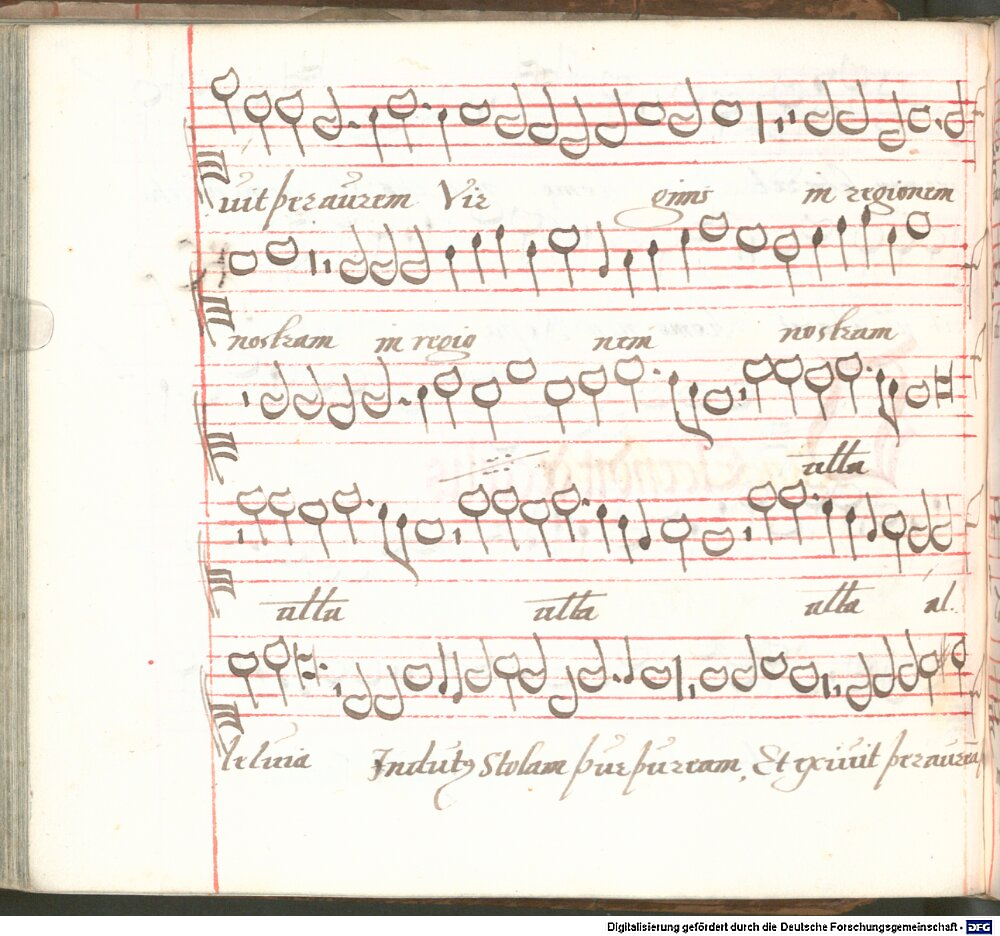 uit per aurem Vir ginis in regionem
nostram in regio nem nostram
alla
alla alla alla al
leluia Indutus Stolam purpuream, Et exiuit per aurem
Digitalisierung gefördert durch die Deutsche Forschungsgemeinschaft - DFG